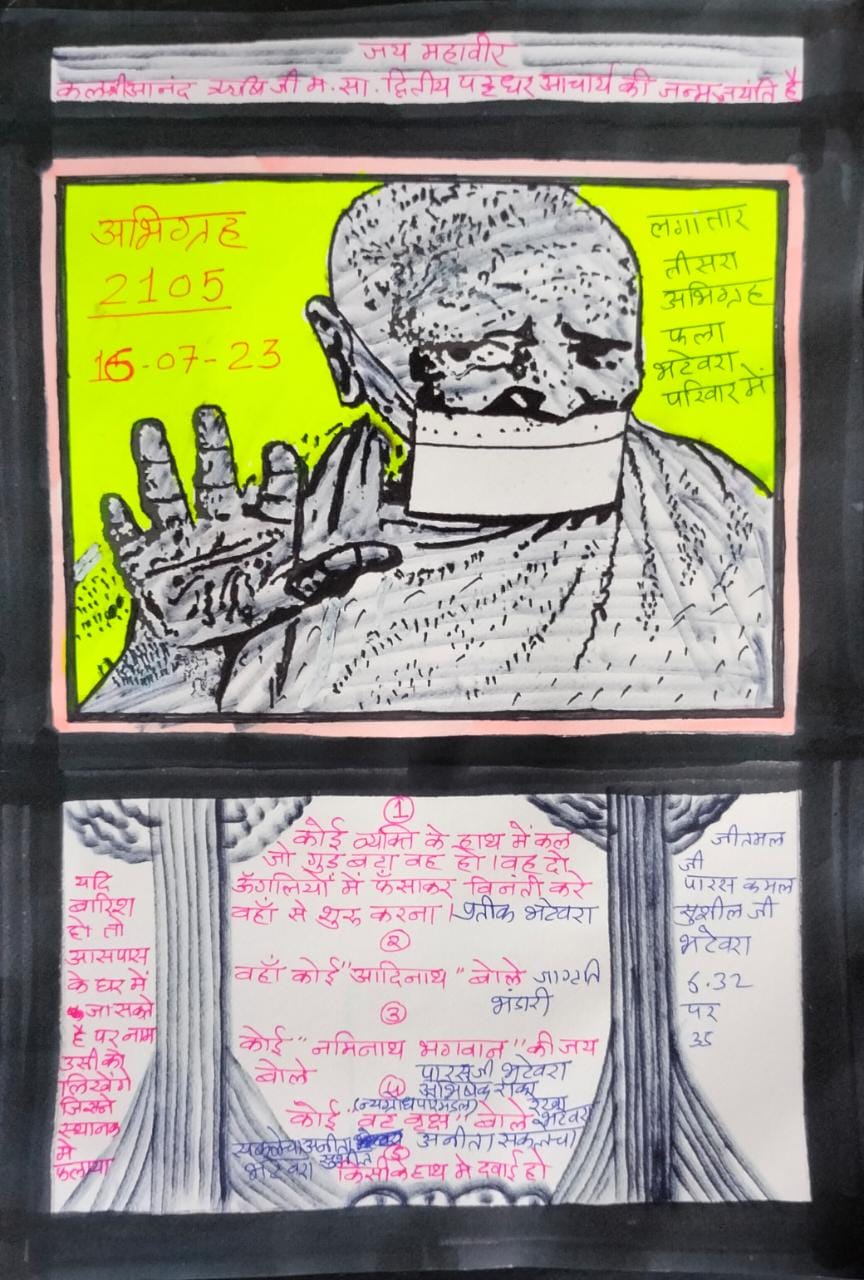 जय महावीर
कल श्री आनंद ऋषि जी म. सा. द्वितीय पट्टधर आचार्य की जन्म जयंति है
अभिग्रह
2105
16-07-23
लगातार
तीसरा
अभिग्रह
फला
भटेवरा
परिवार में
1
कोई व्यक्ति के हाथ में कल
जो गुड़ बटा वह हो । वह दो
ऊँगलियों में फँसाकर विनंती करे
वहाँ से शुरु करना । प्रतीक भटेवरा
2
वहाँ कोई "आदिनाथ" बोले जागृति
भंडारी
3
कोई "नमिनाथ भगवान" की जय
बोले पारसजी भटेवरा
4 अभिषेक रांका
(न्यग्रोधपरिमंडल) रेखा
कोई वट वृक्ष" बोले भटेवरा
अनीता सकलेचा
सकलेचा अनीता
भटेवरा सुशील 5
किसी के हाथ में दवाई हो
यदि
बारिश
हो तो
आसपास
के घर में
जा सकते
है पर नाम
उसी का
लिखेंगे
जिसने
स्थानक
में
फलाया
जीतमल
जी
पारस कमल
सुशील जी
भटेवरा
6.32
पर
35